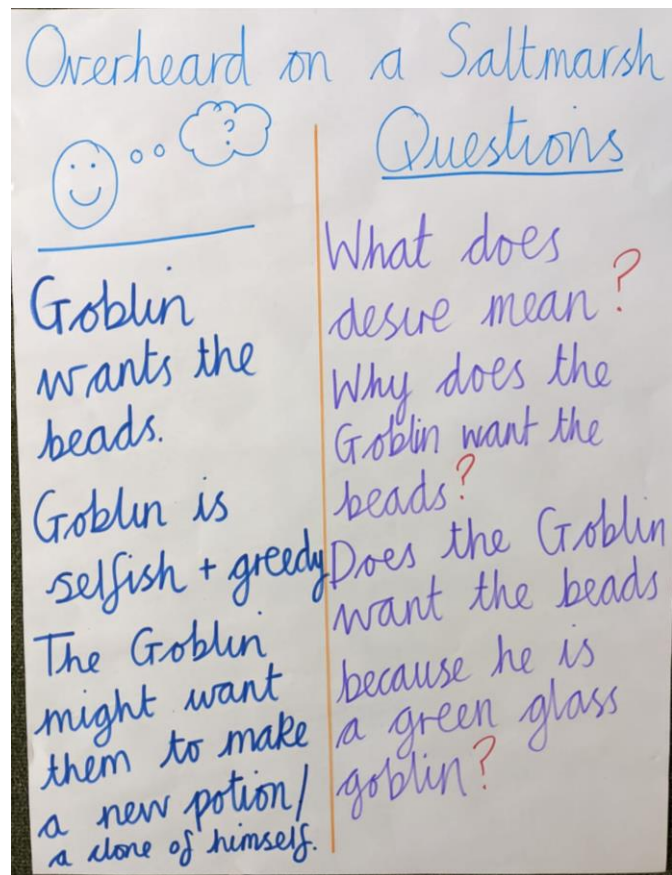 Overheard on a Saltmarsh
?
Goblin
wants the
beads.
Goblin is
selfish + greedy
The Goblin
might want
them to make
a new potion/
a clone of himself.
Questions
What does
desire mean?
Why does the
Goblin want the
beads?
Does the Goblin
want the beads
because he is
a green glass
goblin?